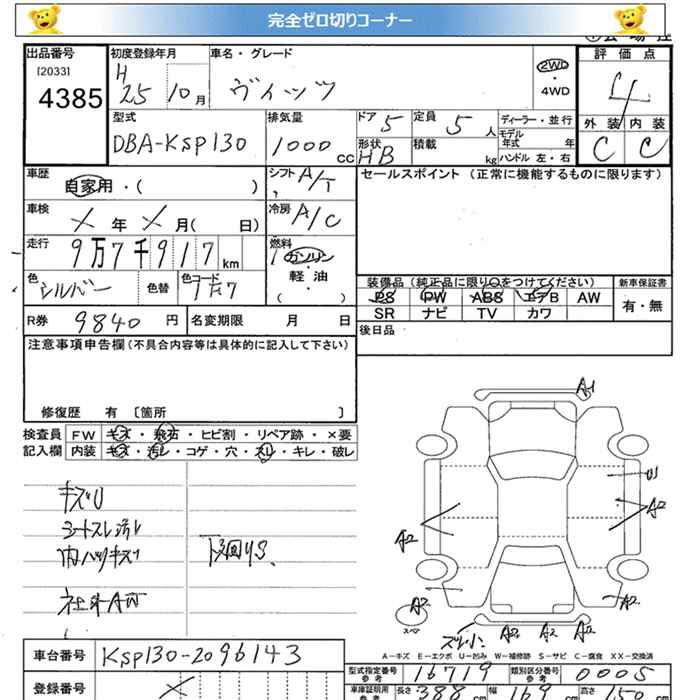 完全ゼロ切りコーナー
出品番号 初度登録年月 車名・グレード 評価点
[2033] H
4385 25 10月 ヴィッツ 2WD・4WD 4
型式 排気量 ドア 5 定員 5人 ディーラー・並行 外装 内装
DBA-KSP130 1000cc 形状 HB 積載 kg モデル年式 年 ハンドル 左・右 C C
車歴 自家用・( ) シフト A/T セールスポイント(正常に機能するものに限ります)
車検 X年X月( 日) 冷房 A/C
走行 9万7千917km 燃料 ガソリン・軽・油 ( )
色 シルバー 色替 色コード 1F7
装備品(純正品に限り○をつけてください) 新車保証書
PS PW ABS エアB AW 有・無
SR ナビ TV カワ
R券 9840円 名変期限 月 日 後日品
注意事項申告欄(不具合内容等は具体的に記入して下さい)
修復歴 有 〔箇所 〕
検査員 FW キズ・飛石・ヒビ割・リペア跡・×要
記入欄 内装 キズ・汚レ・コゲ・穴・スレ・キレ・破レ
キズU
シートスレ汚レ
内ハリキズ
下廻りS
A1
U
A2
A2
A2
A2
スペア
A-キズ E-エクボ U-凹み W-補修跡 S-サビ C-腐食 XX-交換済
車台番号 KSP130-2096143
登録番号 X
型式指定番号 参考 16719 類別区分番号 参考 0005
車庫証明用 参考 長さ 388 幅 169 高さ 150